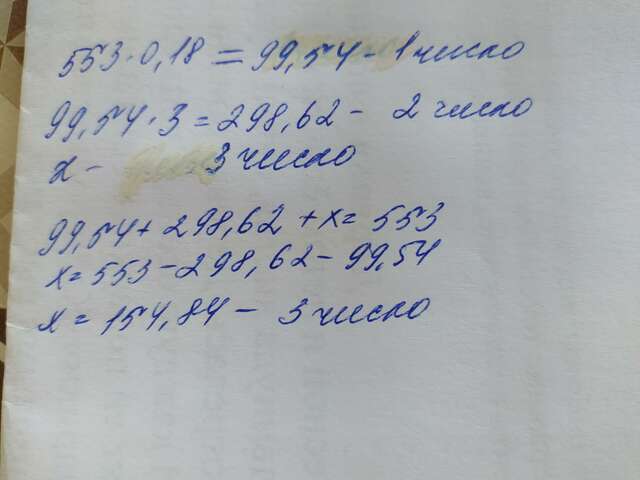 553·0,18 = 99,54 - 1 число
99,54·3 = 298,62 - 2 число
x - 3 число
99,54 + 298,62 + x = 553
x = 553 - 298,62 - 99,54
x = 154,84 - 3 число